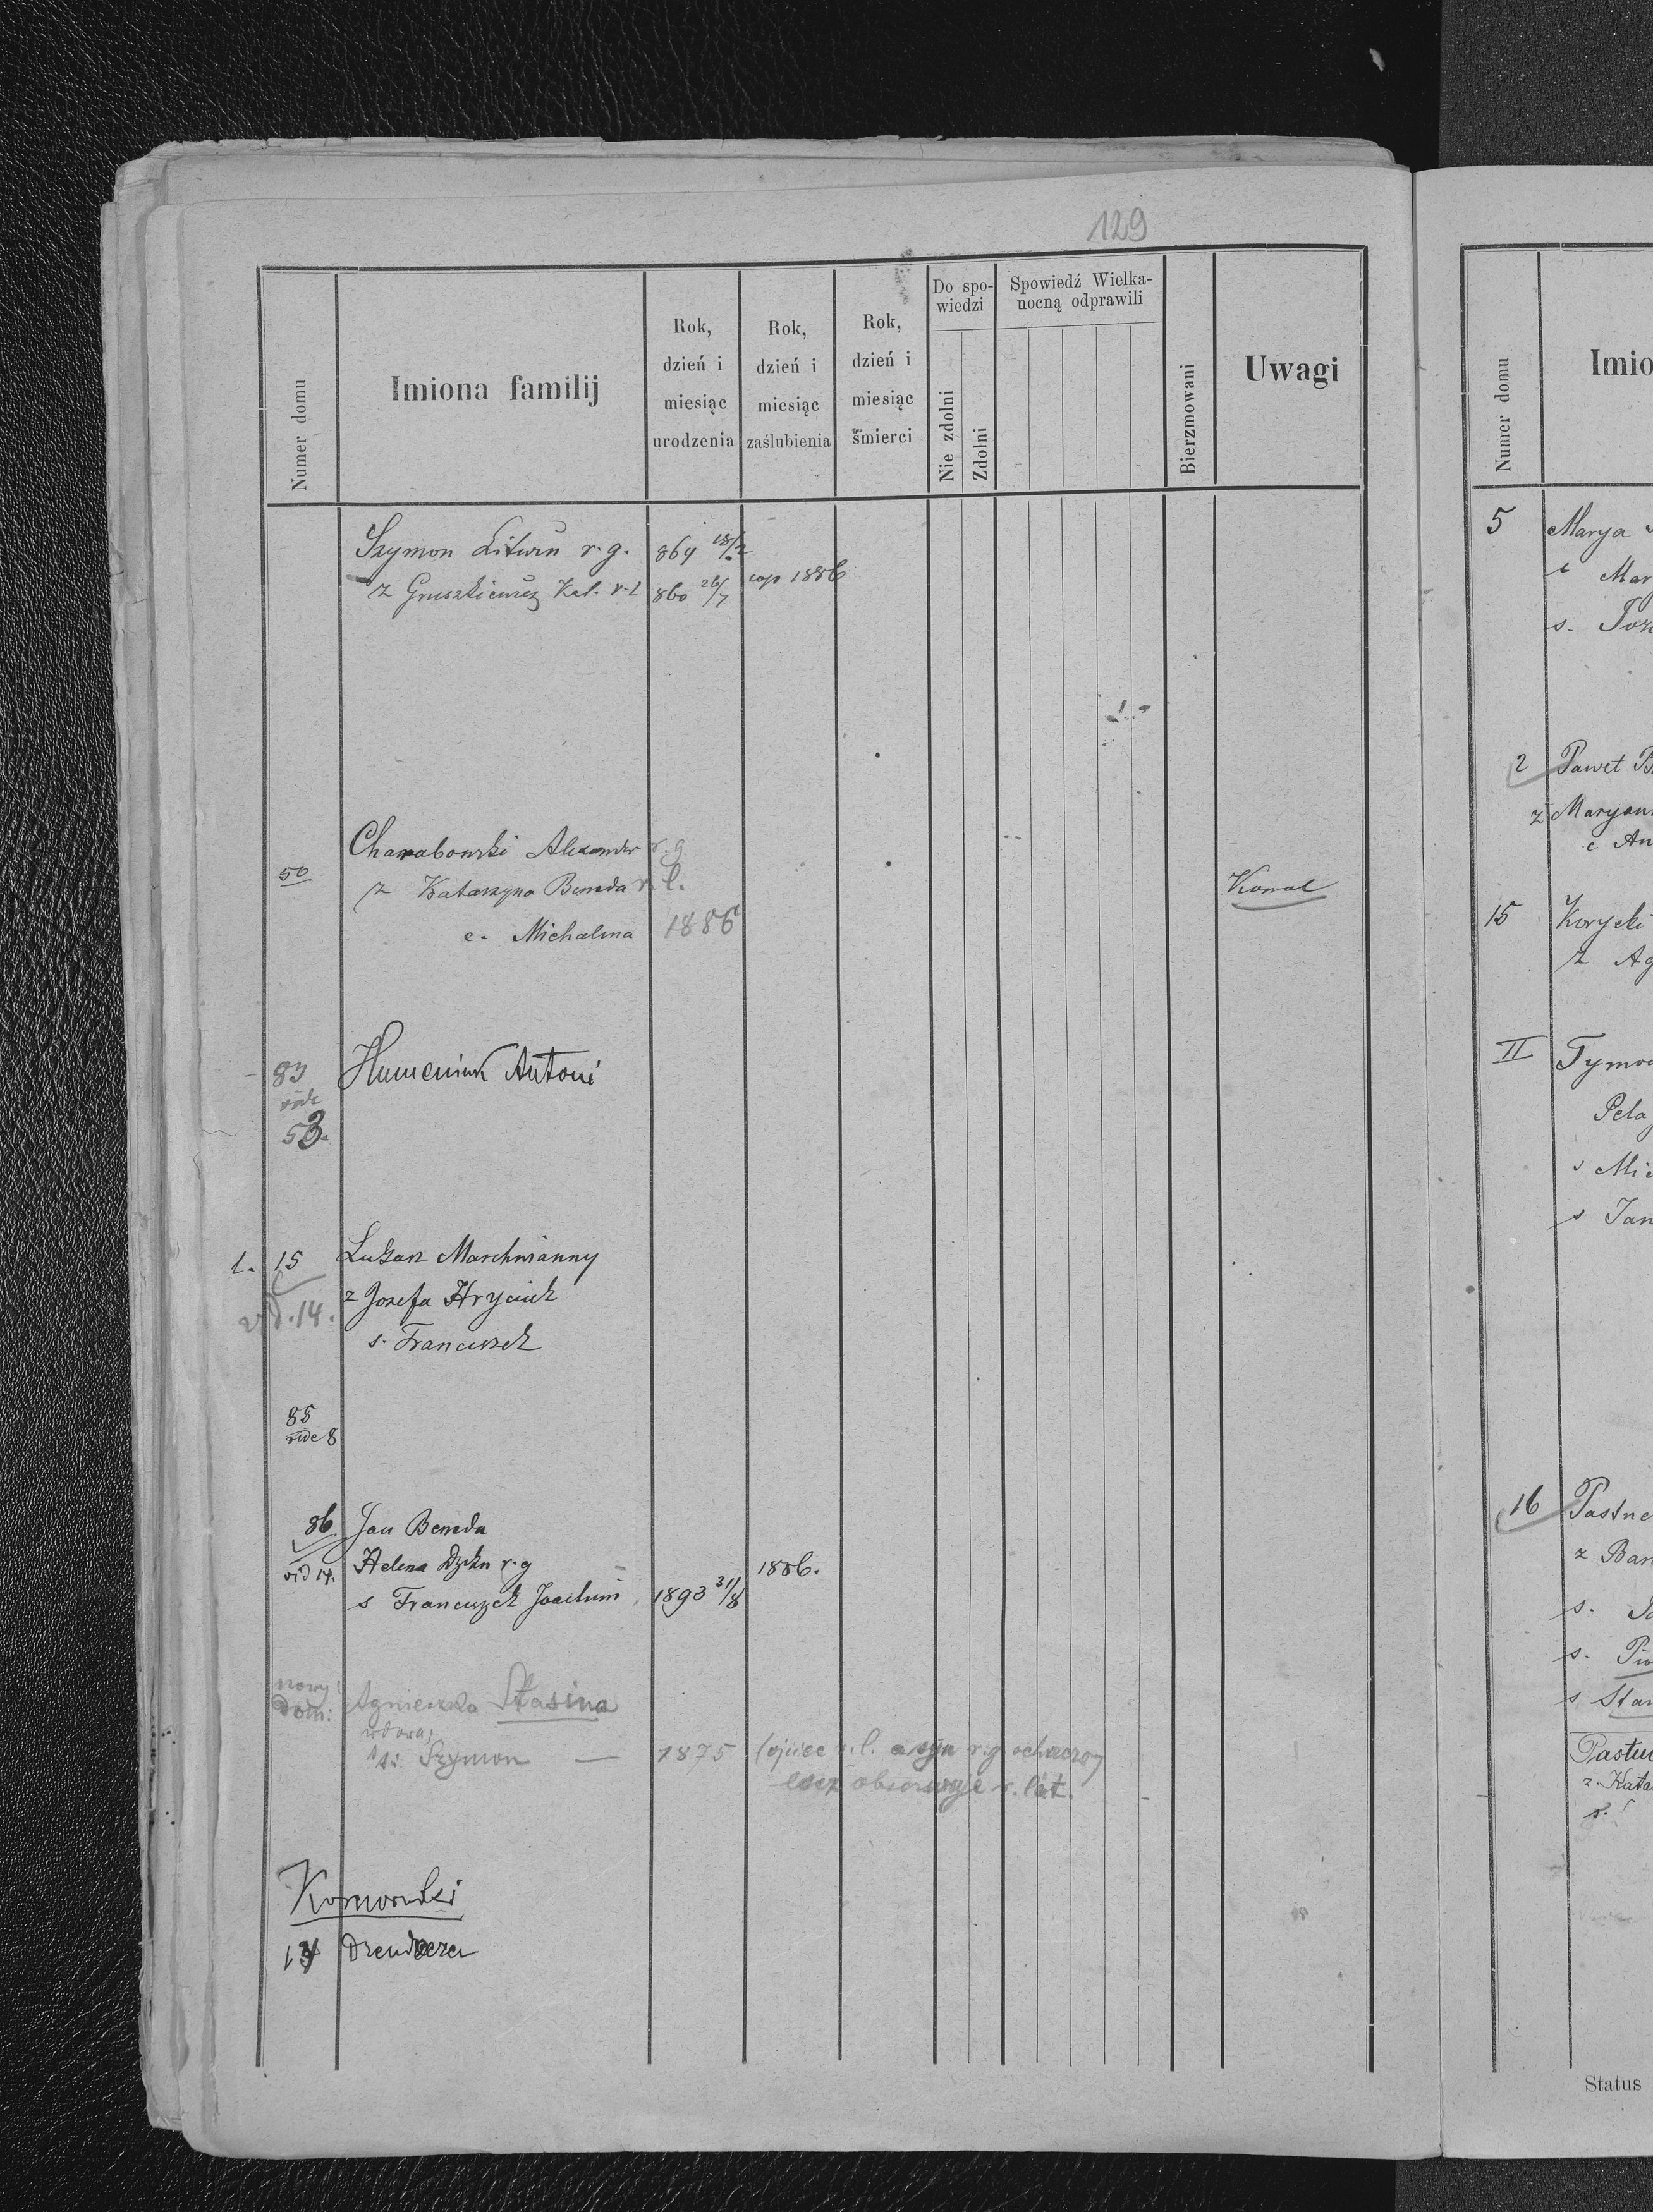 129
Numer domu
Imiona familij
Rok, dzień i miesiąc urodzenia
Rok, dzień i miesiąc zaślubienia
Rok, dzień i miesiąc śmierci
Do spowiedzi
Nie zdolni
Zdolni
Spowiedź Wielkanocną odprawili
Bierzmowani
Uwagi
Szymon Litwin r. g. 864 18/2
z Gruszkiewicz Kat. r. l 860 26/7 cop 1886
Charabowski Alexander r. g
50 z Katarzyna Beneda r. l. Konal
c. Michalina 1886
83 Humeniuk Antoni
vide
53
1. 15 Łukasz Marchwianny
vid. 14. z Jozefa Hryciuk
s. Franciszek
85
vide 8
86. Jan Beneda
vid 14. Helena r. g 1886.
s Franciszek Joachim 1893 31/8
nowy
dom: Agnieszka Stasina
wdowa
s: Szymon — 1875 (ojciec r. l. a syn r. g ochrzczony
lecz obserwuje r. łat.
Komorniki
Numer domu
Imio
5 Marya
c Mar
s. Józ
2 Paweł
z Maryan
c An
15 Korycki
z Ag
II Tymo
Pela
s Mic
s Jan
16 Pastne
z Bar
s.
s. Pio
s Sta
Pastu
z. Kata
s.
Status